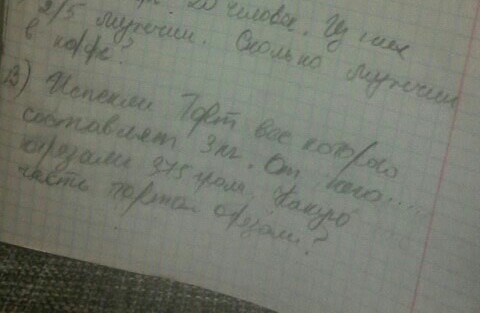 20 человек. Из них
2/5 мужчин. Сколько мужчин
в кафе?
В) Испекли Торт вес которого
составляет 3кг. От него.....
отрезали 375 грам. Какую
часть торта отрезали?